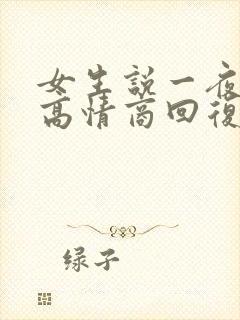 女生説一夜
高情商回復
绿子